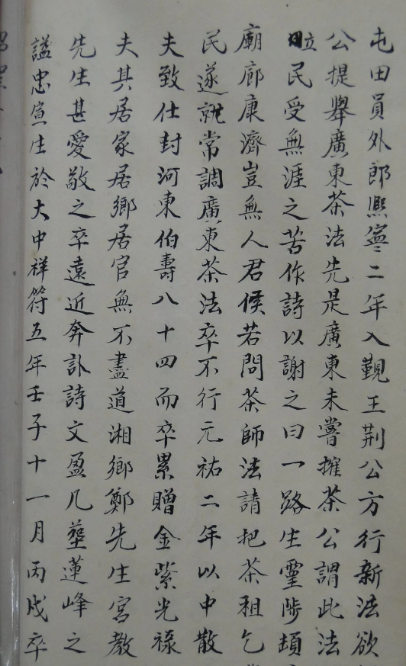 屯田員外郎熙寧二年入覲王荊公方行新法欲
公提舉廣東茶法先是廣東未嘗搉茶公謂此法
一立民受無涯之苦作詩以謝之曰一路生靈陟
廟廊康濟豈無人君候若問茶師法請把茶租乞
民遂就常調廣東茶法卒不行元祐二年以中散
夫致仕封河東伯壽八十四而卒累贈金紫光祿
夫其居家居鄉居官無不盡道湘鄉鄭先生宮教
先生甚愛敬之卒遠近奔訃詩文盈几塟蓮峰之
謚忠宣生於大中祥符五年壬子十一月丙戌卒